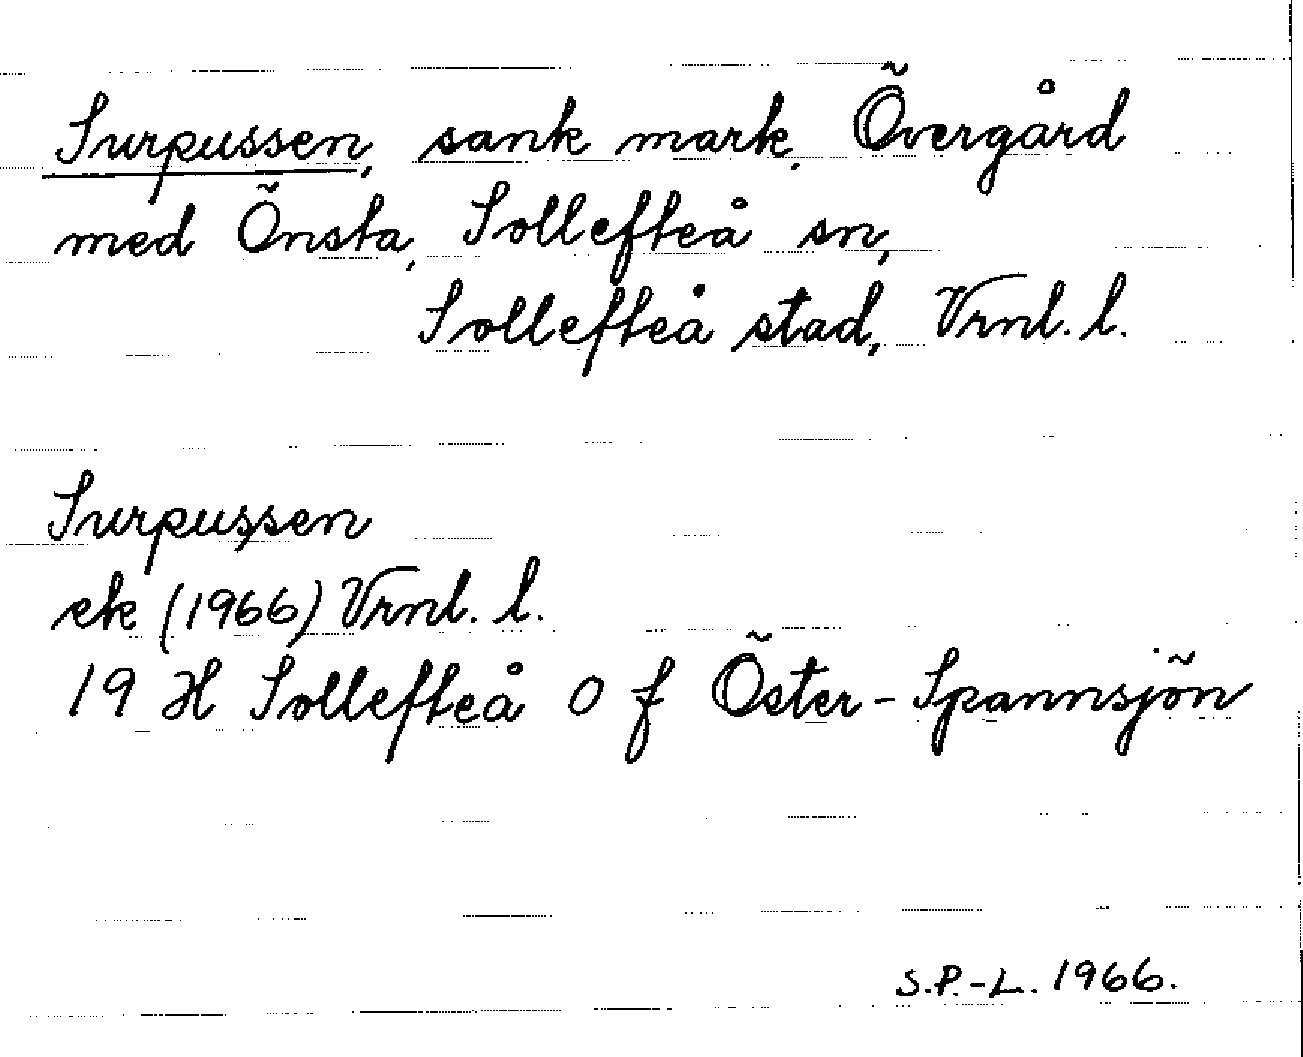 Surpussen, sank mark. Övergård
med Önsta, Sollefteå sn,
Sollefteå stad, Vrnl. l.
Surpussen
ek (1966) Vrnl. l.
19 H Sollefteå O f Öster-Spannsjön
S.P.-L. 1966.